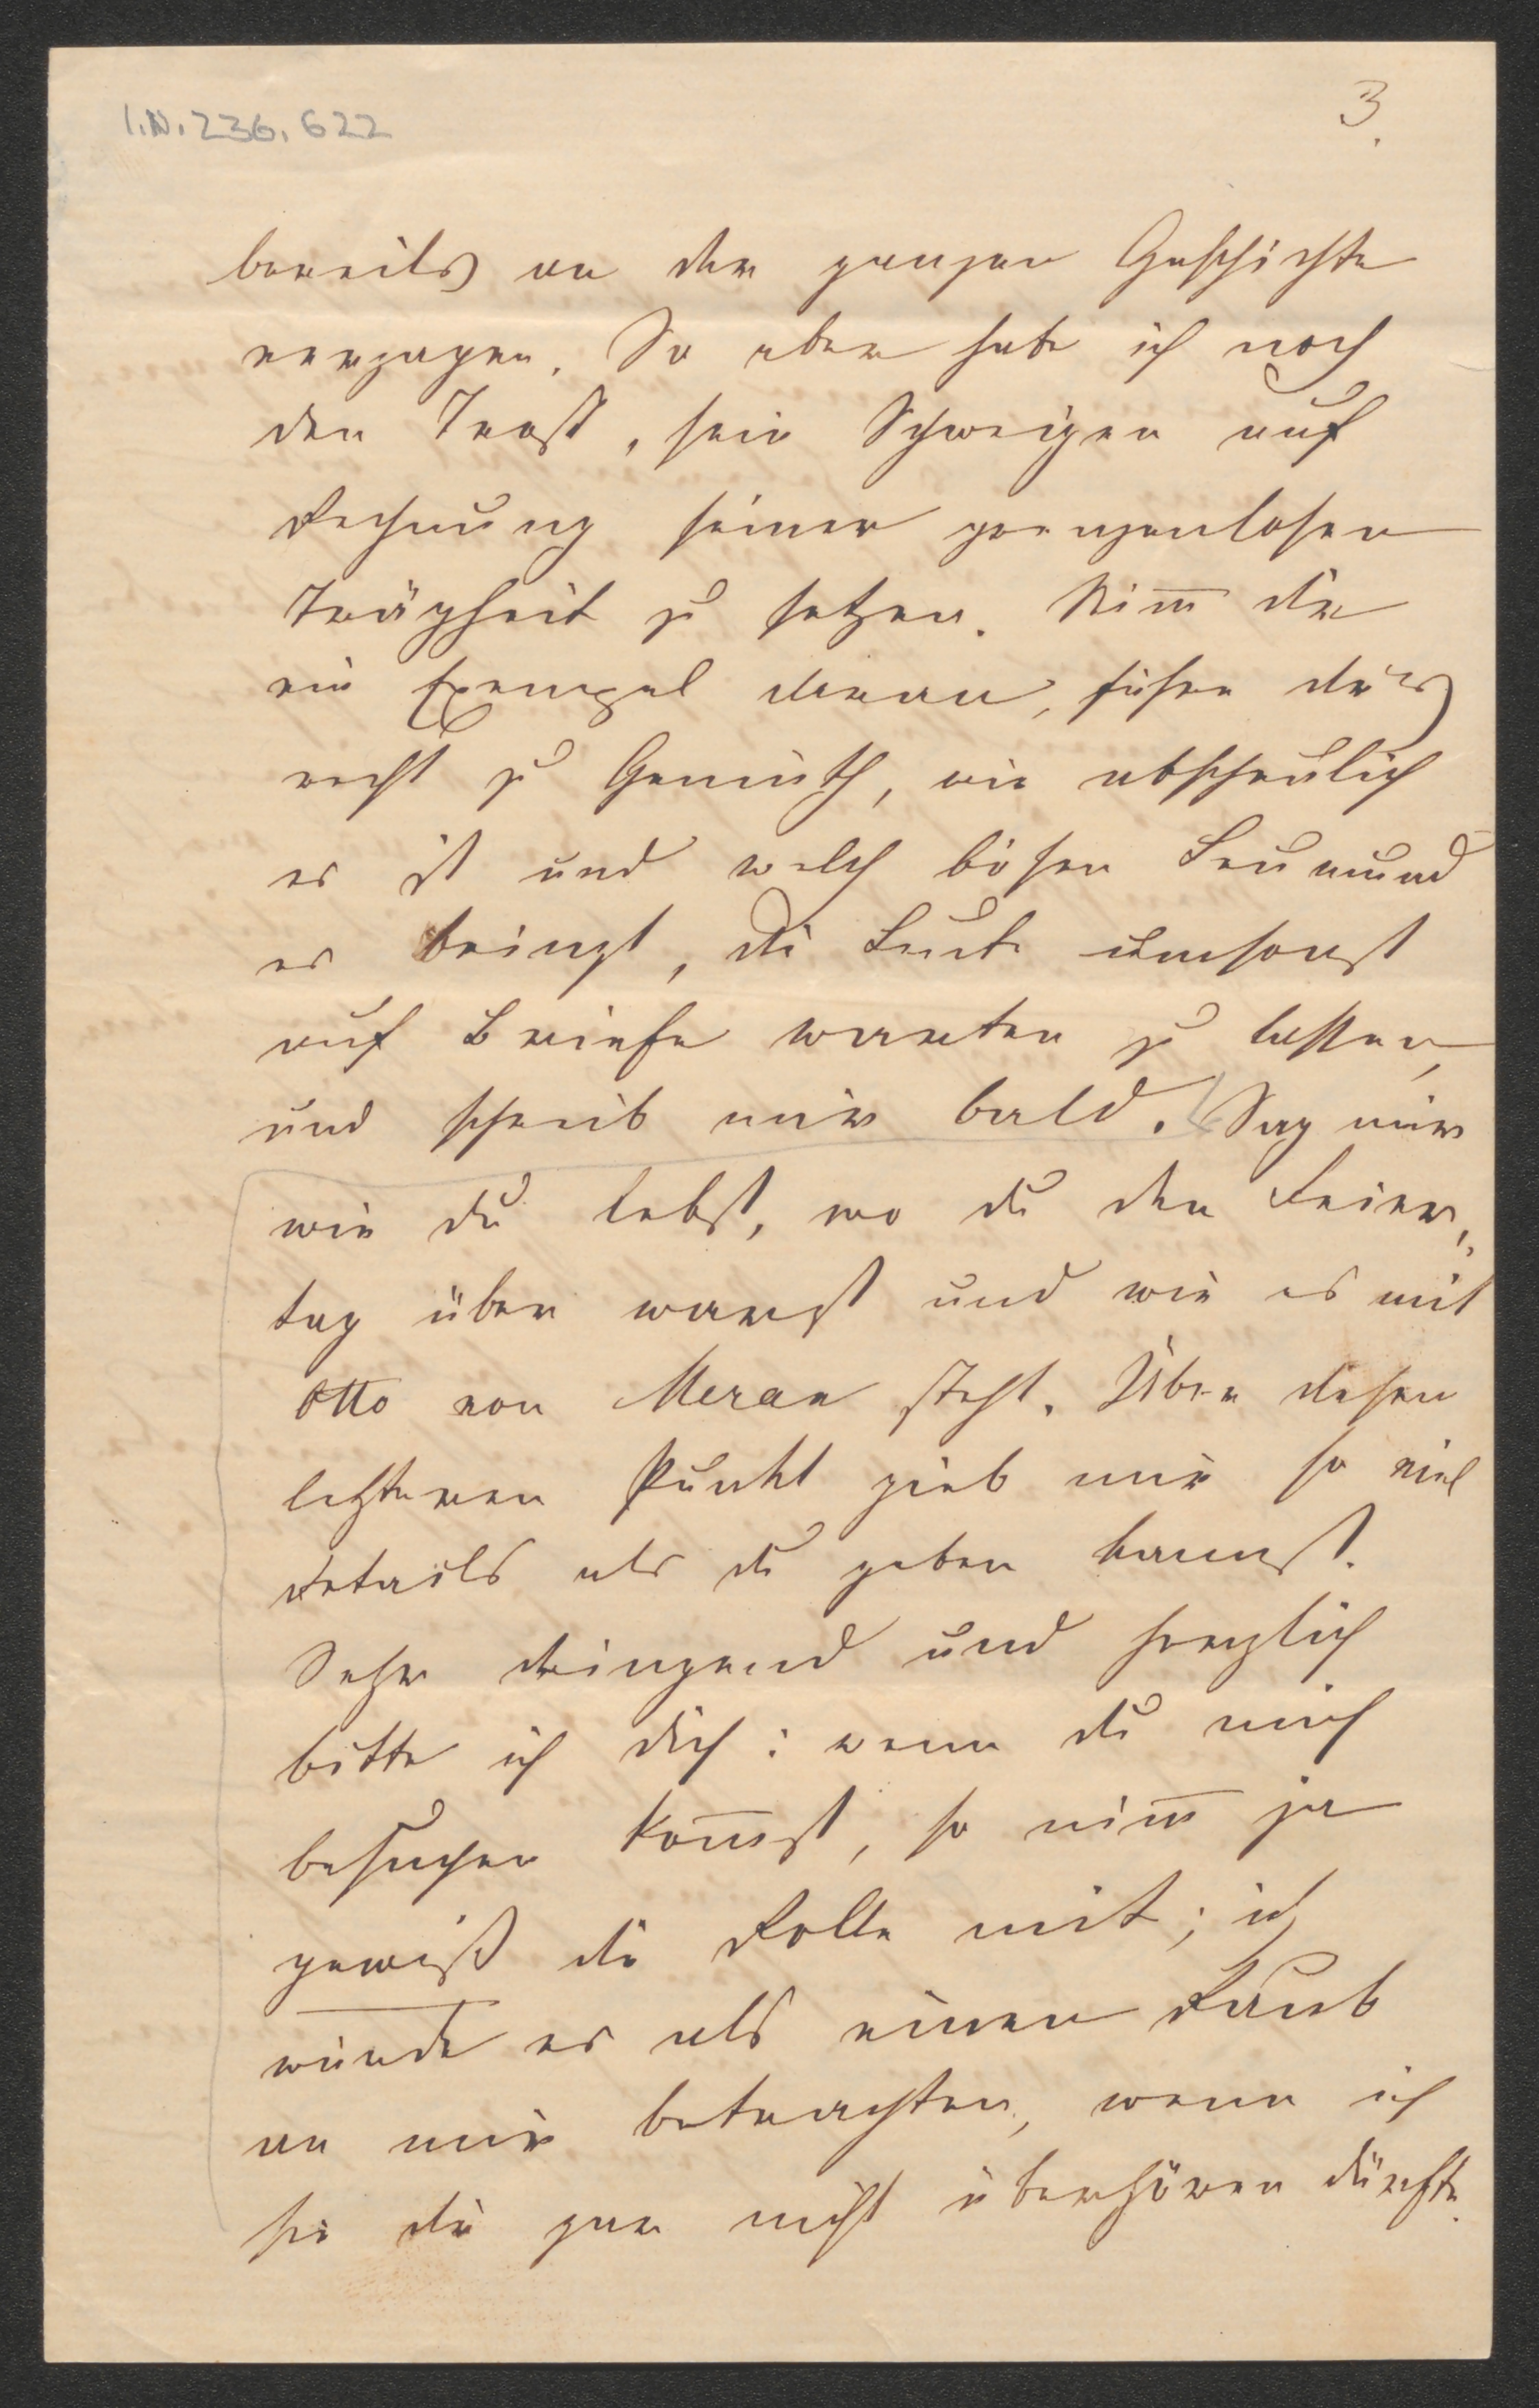 I.N. 236.622
3.
bereits an der ganzen Geschichte
verzagen. So aber habe ich noch
den Trost, sein Schweigen auf
Rechnung seiner grenzenlosen
Trägheit zu setzen. Nim̅ dir
ein Exempel daran, führe dir's
recht zu Gemüth, wie abscheulich
es ist und welch bösen Leumund
es bringt, die Leute umsonst
auf Briefe warten zu lassen,
und schreib mir bald. Sag mir
wie du lebst, wo du den Feier„
tag über warst und wie es mit
Otto von Meran steht. Über diesen
letzteren Punkt gieb mir so viel
Details als du geben kannst.
Sehr dringend und herzlich
bitte ich dich: wenn du mich
besuchen kom̅st, so nim̅ ja
gewiß die Rolle mit; ich
würde es als einen Raub
an mir betrachten, wenn ich
sie dir gar nicht überhören dürfte.